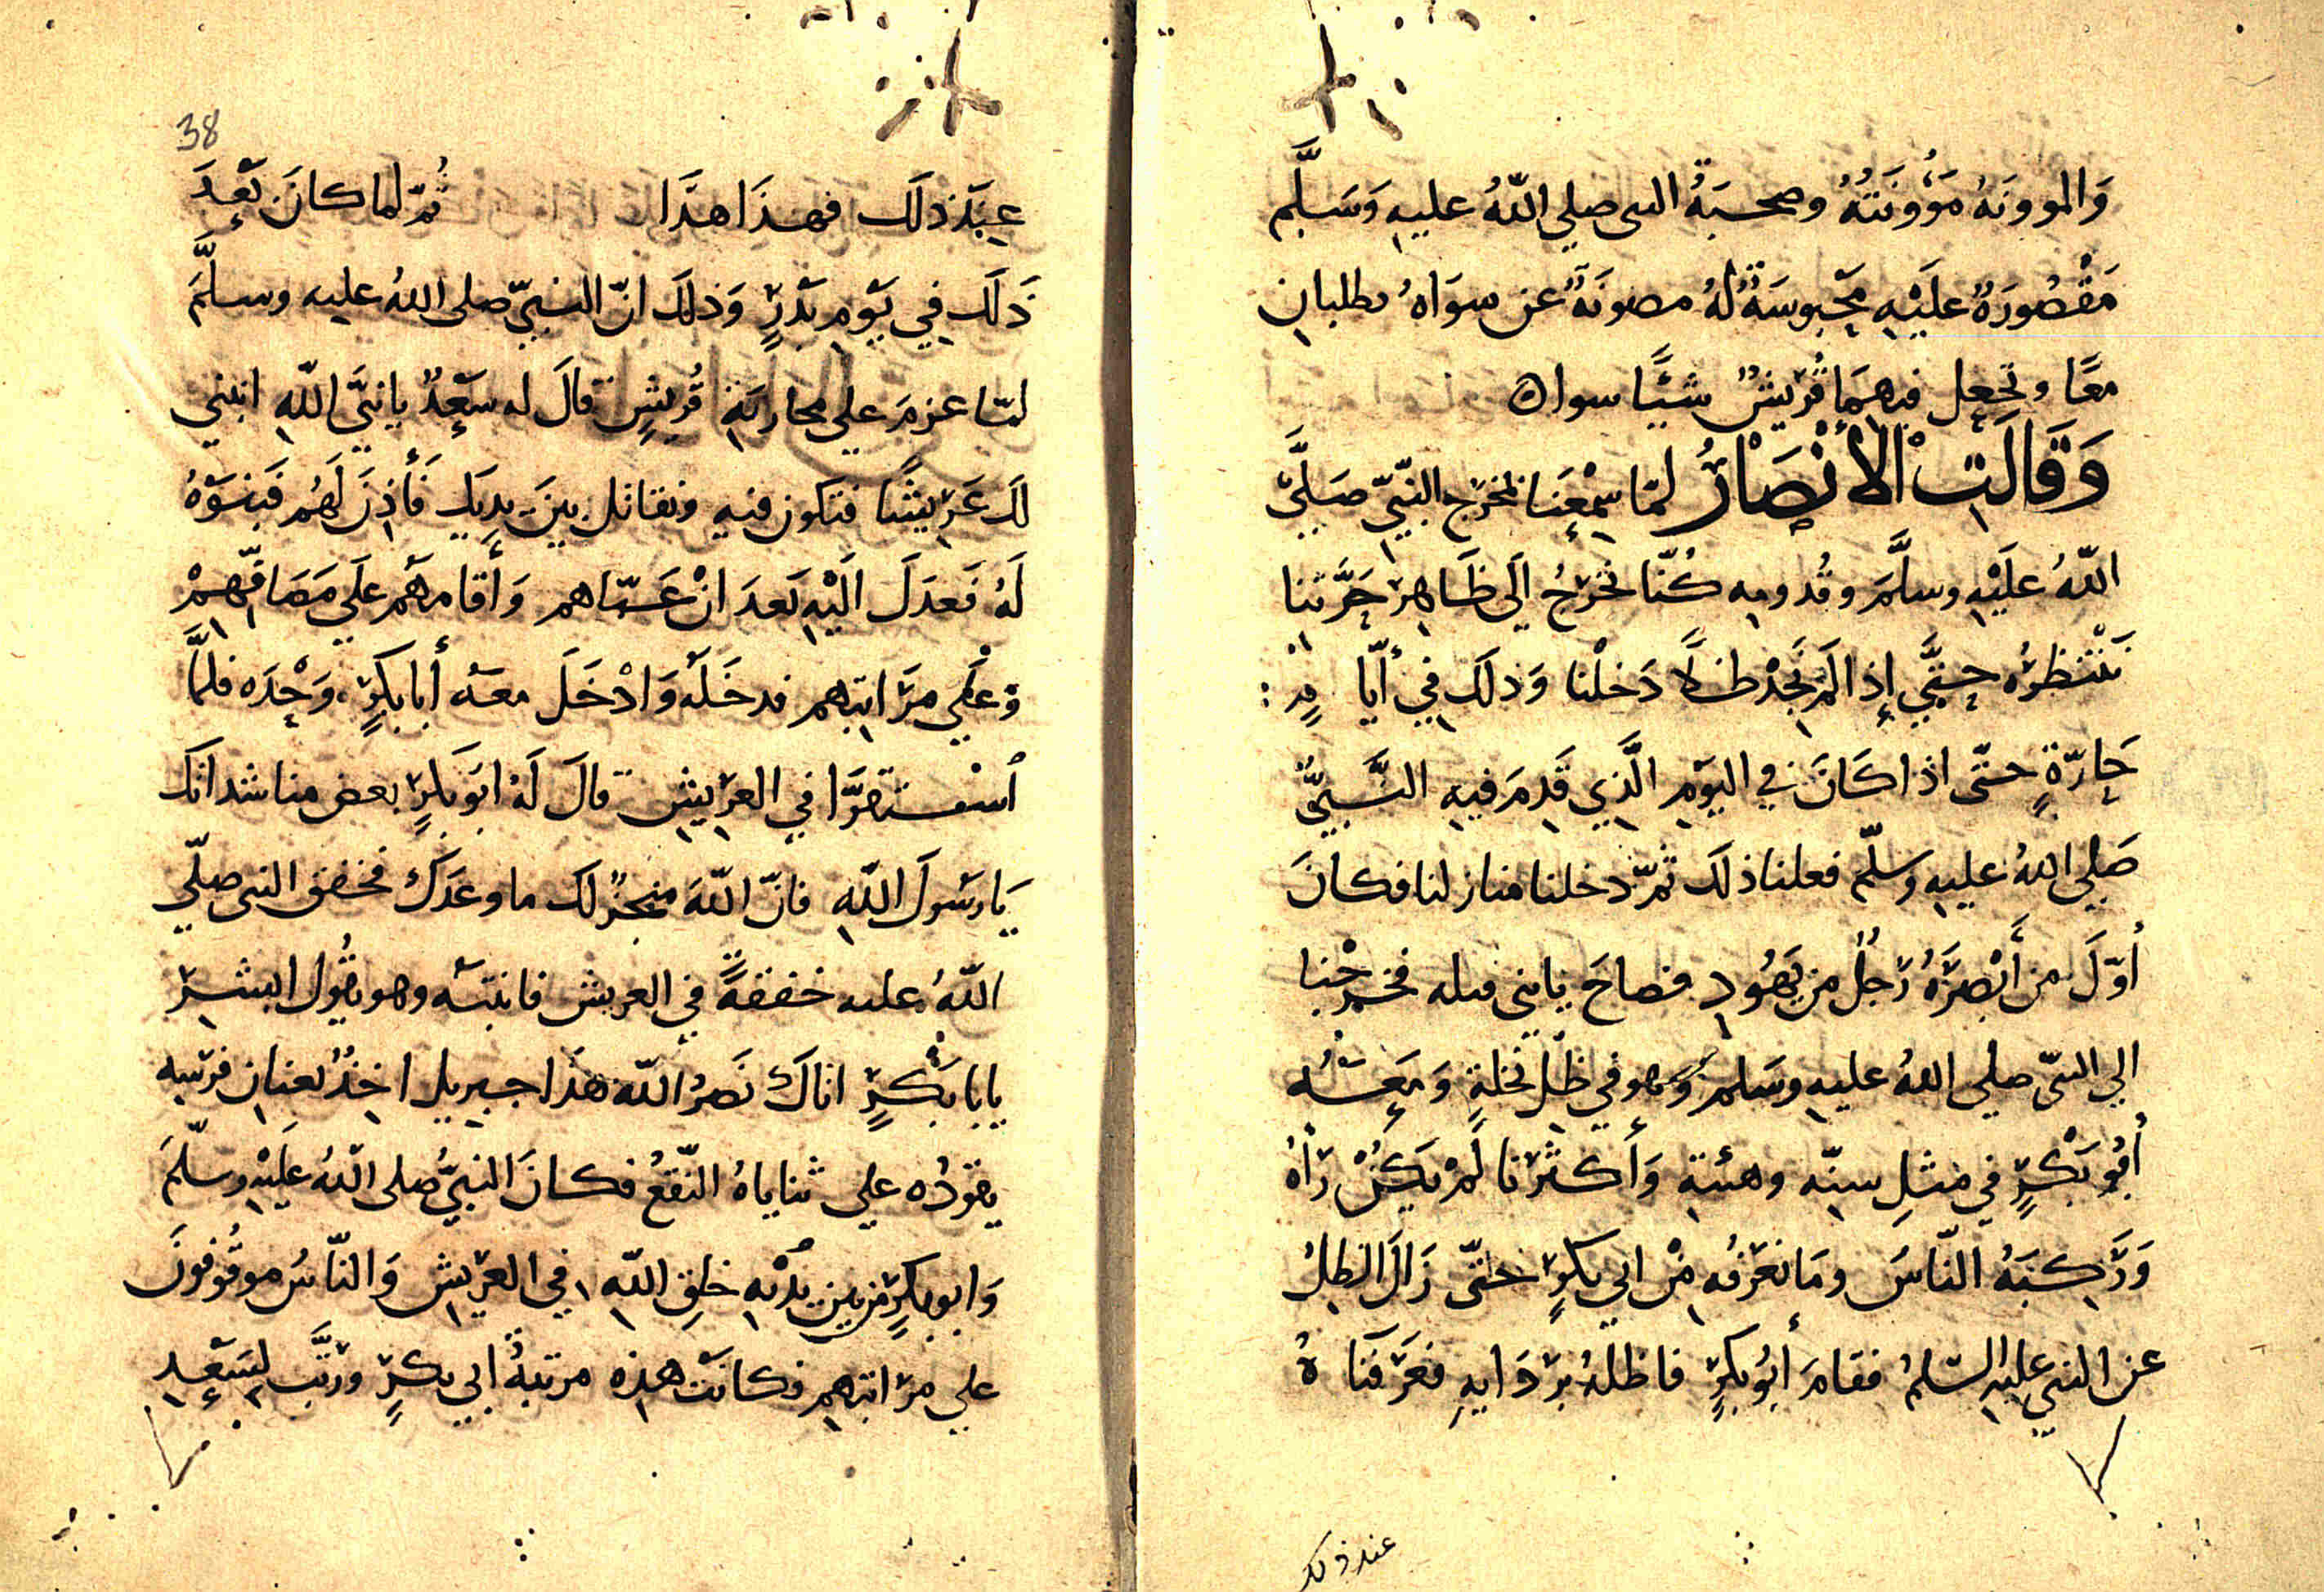 وَالموونَهُ مَؤُونَتُهُ وصحبَةُ النبى صلي اللّهُ عليهِ وَسَلَّم
مَقْصُورَةٌ عليَهِ مَحْبوسَةٌ لهُ مصونَةٌ عن سوَاهُ يطلبانِ
معًا وتجعل فيهمَا قُريشٌ شيًّا سواه
وَقَالَتِ الأنْصَارُ لمّا سِمْعِنا مخرَج النبّيّ صَلَّىَ
اللّهُ عليَهِ وسلَّمَ وقُدومِهِ كُنّا نخرُجُ الَي ظَاهِرِ حَرَّتنا
نَنْتظرُه حتىَّ إذا لَم نَجدْ ظلاً دَخلْنا وَذلَكَ فِي أيّا مٍ
حَارّةٍ حتّى اذا كَانَ في اليوَمِ الَّذِي قَدِمَ فيهِ النَّبيُّ
صَلي اللهُ عليهِ وسلّم فعلنا ذلكَ ثمّ دخلنا منازلنا فكانَ
أوّلَ من أبْصرَهُ رَجُلٌ من يَهُودٍ فصاحَ يابني قيله فخرجْنا
الي النبىّ صلي اللهُ عليهِ وسَلم وَهو في ظلِّ نخلةٍ وَمعَهُ
أبُو بَكْرٍ في مثلِ سنِّه وهئتهِ وَأكثرنا لَمْ يَكنُ رَآهُ
وَرَكبَهُ النّاسُ ومَا نعَرَفُه مِنْ ابي بكرٍ حتّى زَالَ الظلُ
عن النبي عليهِ السّلمُ فقامَ أبُو بكرٍ فاظلهُ برِدَايهِ فعَرَفنَا هُ
عند ذلك
38
عِندَ ذلَكَ فهذَا هذَا ثُمّ لما كانَ بَعدَ
ذَلَكَ فِي يَوْمِ بَدْرٍ وَذلكَ انّ النبيّ صلى اللهُ عليه وسلَّمَ
لمّا عزمَ علي محاربَةِ قُريشٍ قالَ له سَعدٌ يا نبيَّ اللّهِ ابنني
لكَ عَرِيشًا فتكون فيهِ ونقاتل بينَ يديَكِ فَأَذِنَ لَهُم فَبنوَهُ
لهُ فَعدَلَ الَيْهِ بَعدَ انْ عَبّاهم وَأقامهَم علَي مَصَافّهِمْ
وَعَلي مرَاتبهم فدخَلَهُ وَادْخَلَ معهُ أبا بكرٍ وَحْدَه فلمَّا
اسْتقرَّا في العرِيشِ قالَ لَهُ ابوَ بكرٍ بعض مناشدانك
يَا رسَولَ اللّهِ فانّ اللّهَ منجزٌ لك ما وعدَكَ فخفق النبى صلّي
اللّهُ عليه خفقةً في العريش فانتبهَ وهو يقُول ابشرْ
يابا بكْرٍ اتاكَ نَصرُ اللّه هذَا جبريل اخذٌ بعنانِ فرَسِه
يقودُه علي ثناياهُ النّقعُ فكانَ النبيُّ صلى اللّهُ علَيْهِ وسلّمَ
وَابو بكرٍ من بين يدْيهِ خلقِ اللّهِ في العرَيشِ وَالنّاسُ موقُوفونَ
علي مرَاتبهِم فكانتَ هذه مرتبةُ ابي بكرٍ ورتَّب لسَعدٍ